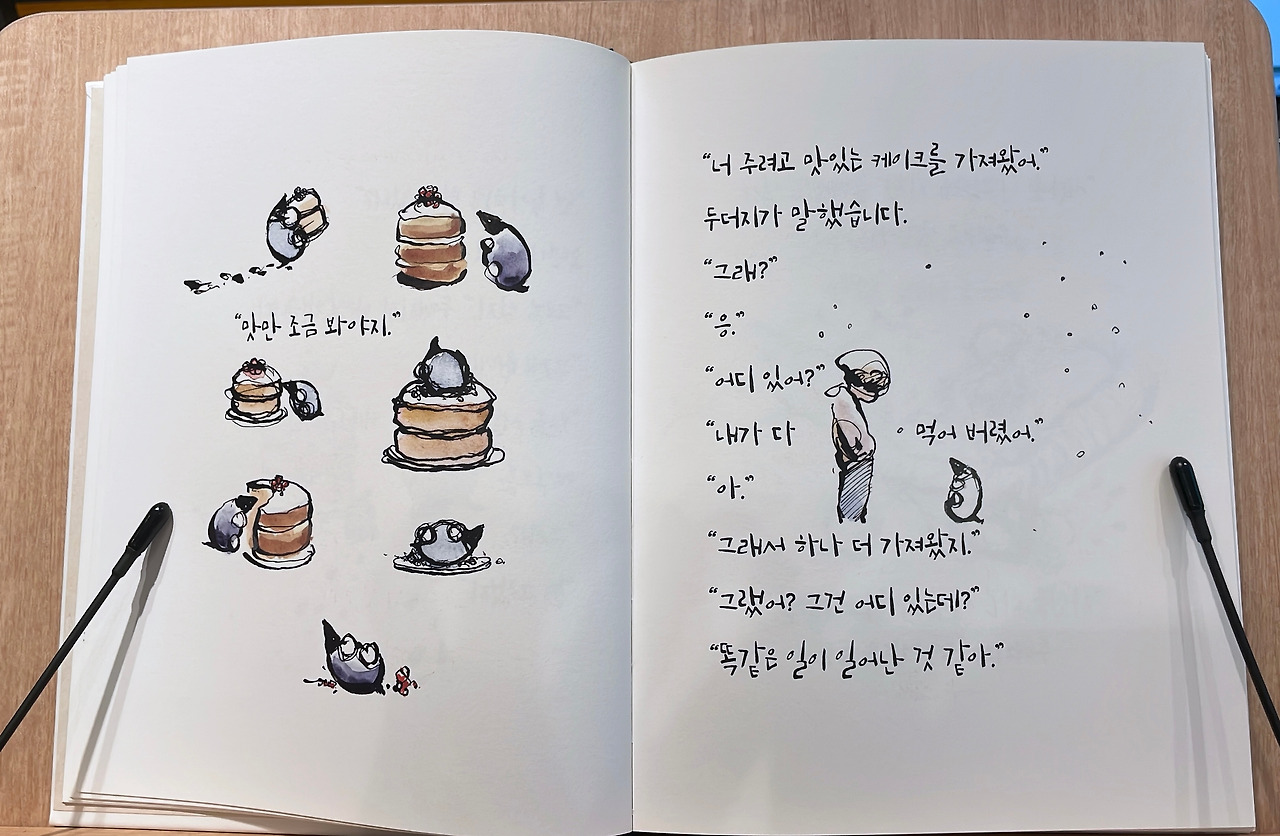 “맛만 조금 봐야지.”
“너 주려고 맛있는 케이크를 가져왔어.”
두더지가 말했습니다.
“그래?”
“응.”
“어디 있어?”
“내가 다 먹어 버렸어.”
“아.”
“그래서 하나 더 가져왔지.”
“그랬어? 그건 어디 있는데?”
“똑같은 일이 일어난 것 같아.”